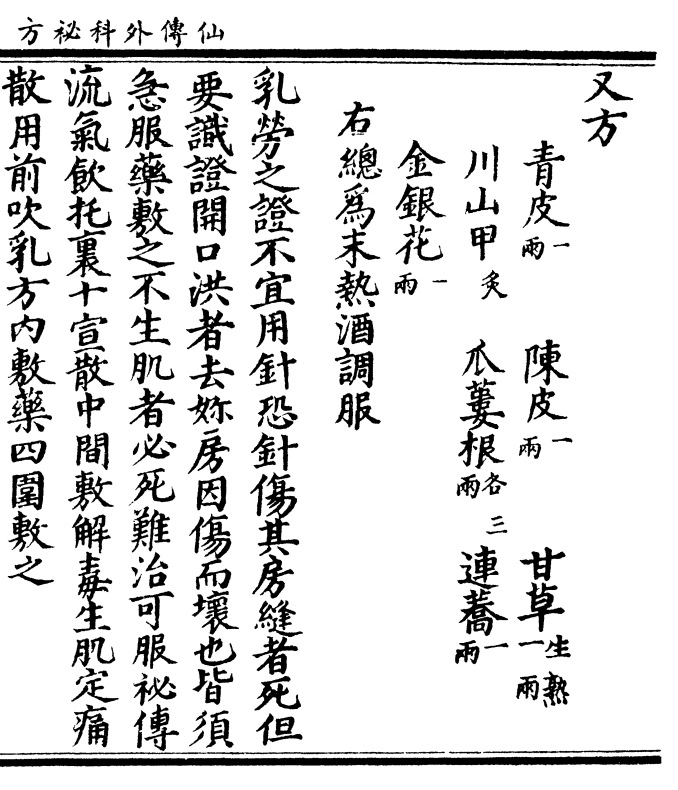 仙傳外科祕方
又方
青皮一兩 陳皮一兩 甘草生熟一兩
川山甲炙 瓜蔞根各三兩 連蕎一兩
金銀花一兩
右總爲末熱酒調服
乳勞之證不宜用針恐針傷其房縫者死但
要識證開口洪者去妳房因傷而壞也皆須
急服藥敷之不生肌者必死難治可服祕傳
流氣飲托裏十宣散中間敷解毒生肌定痛
散用前吹乳方內敷藥四圍敷之